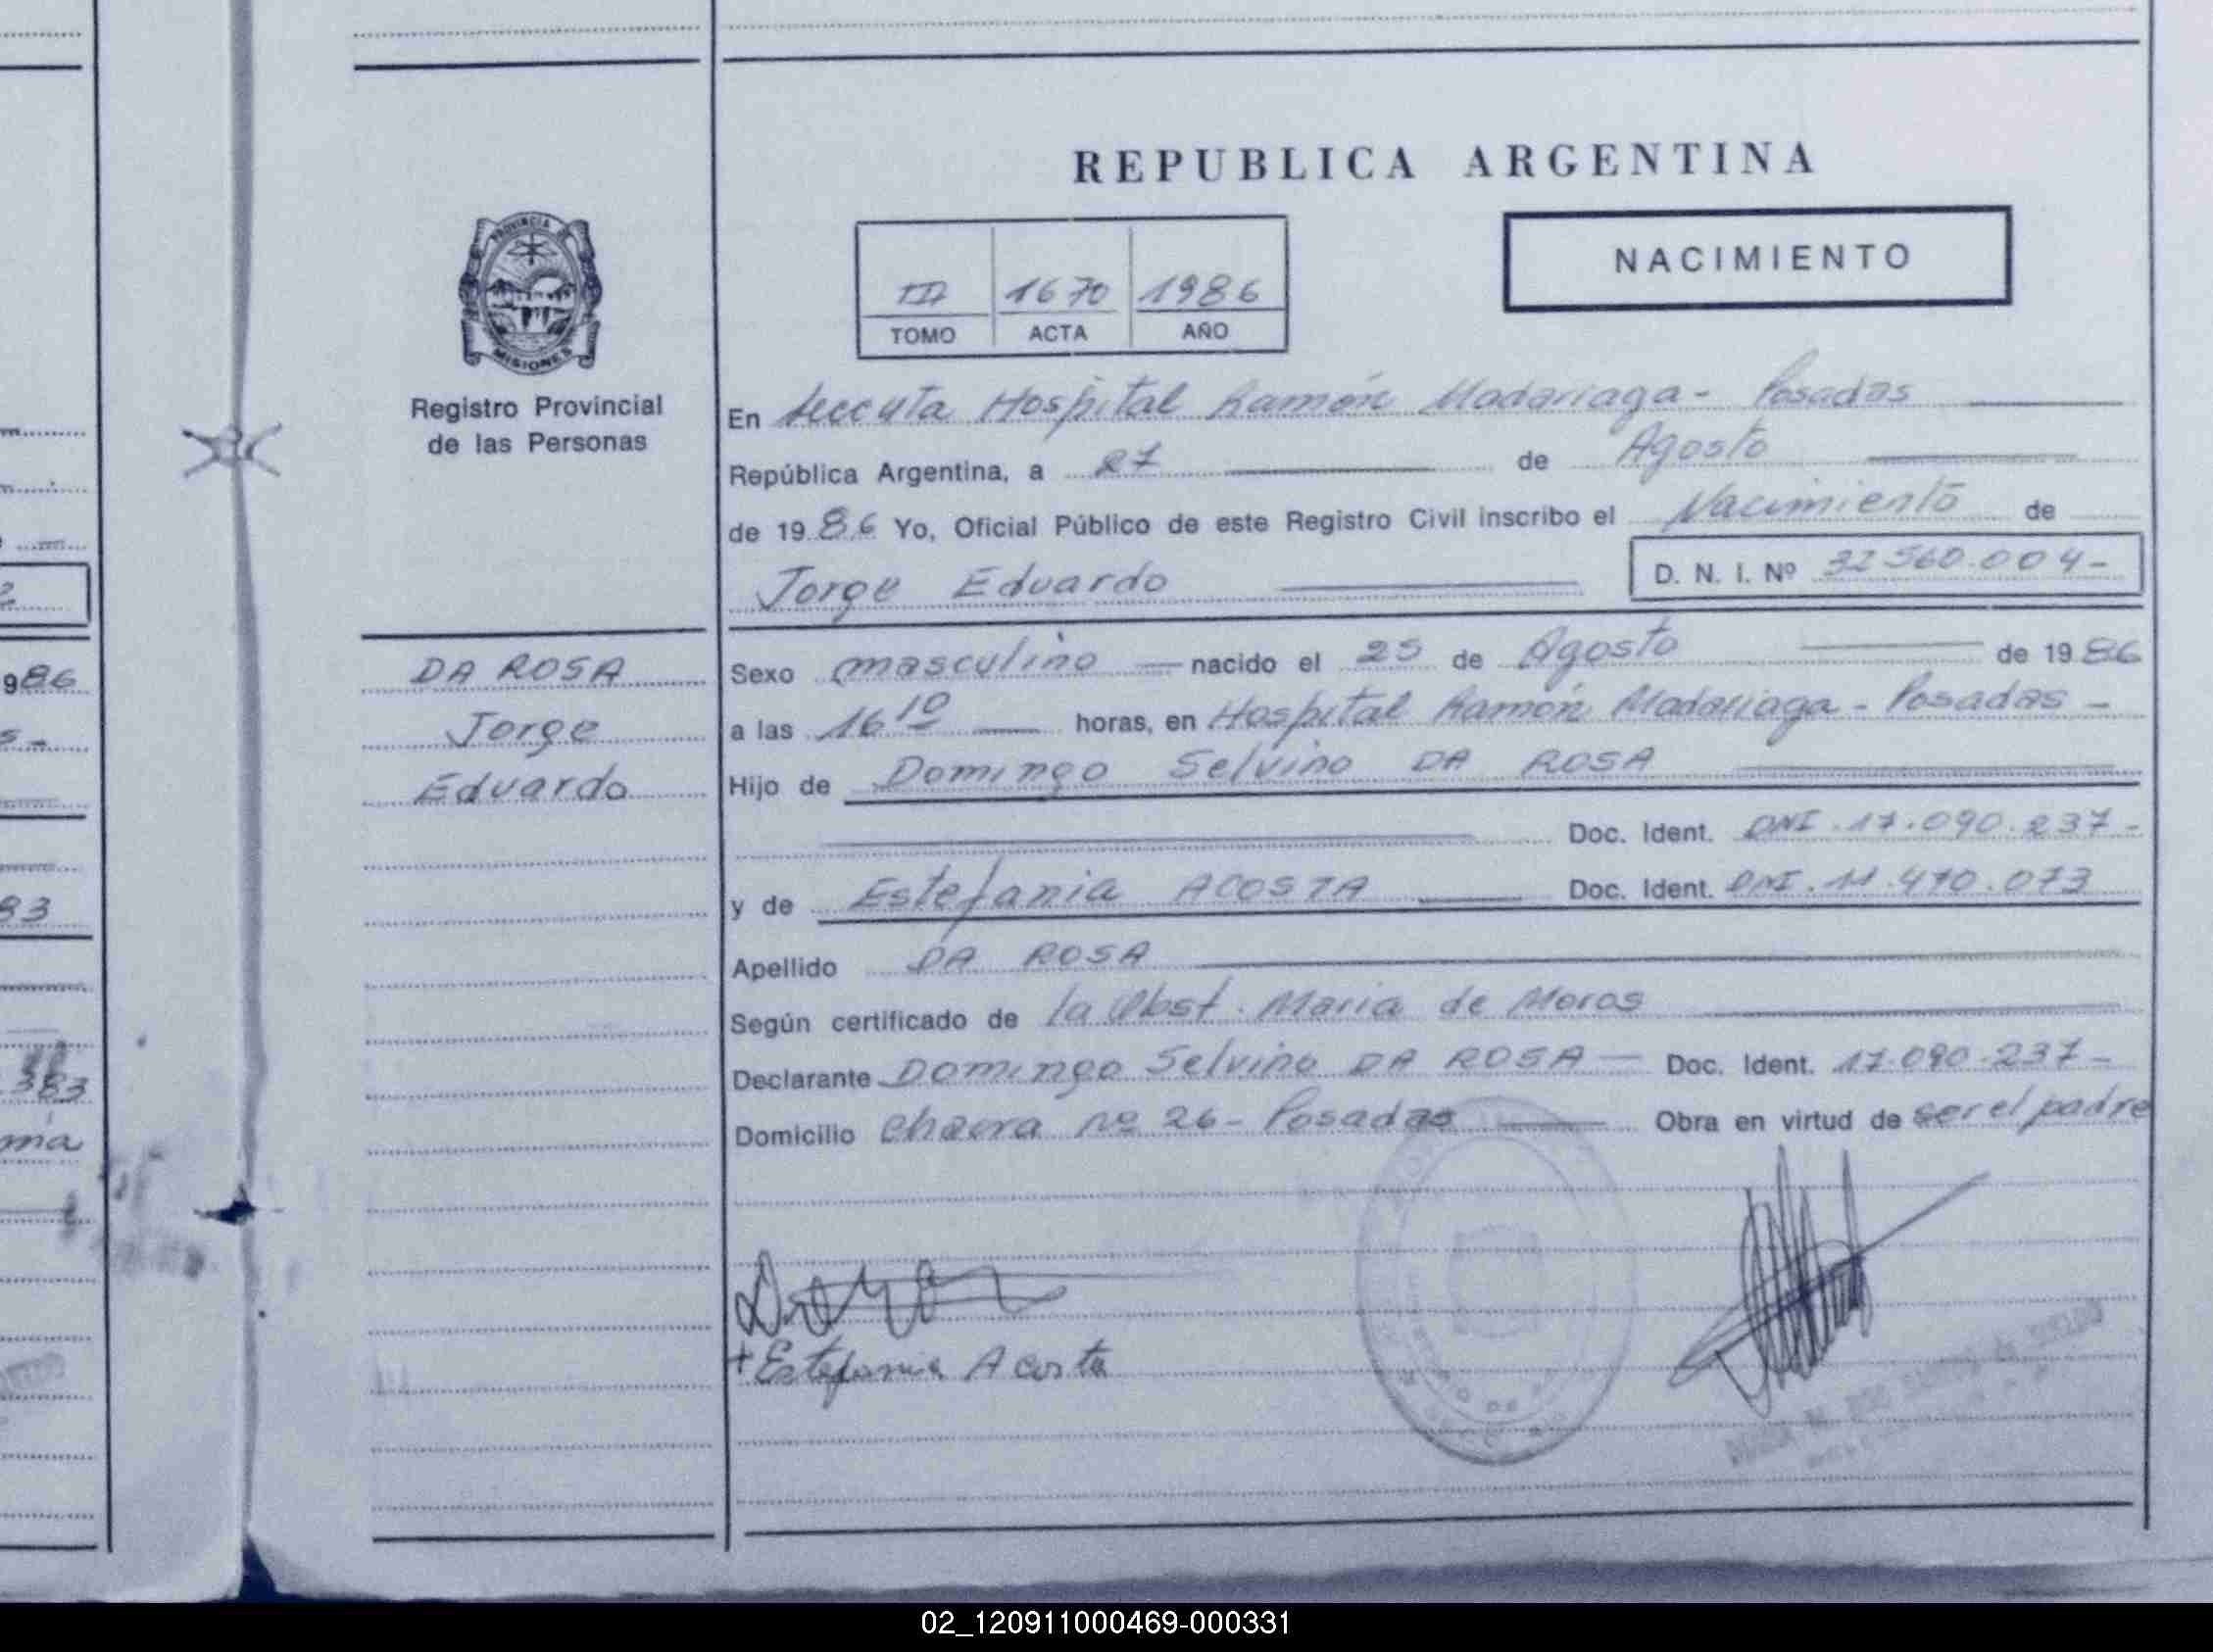 REPUBLICA ARGENTINA
NACIMIENTO
III 1670 1986
TOMO ACTA AÑO
PROVINCIA DE
MISIONES
Registro Provincial
de las Personas
En Hospital Ramón Madariaga - Posadas
República Argentina, a 27 de Agosto
de 1986 Yo, Oficial Público de este Registro Civil inscribo el Nacimiento de
Jorge Eduardo D. N. I. Nº 32.560.004-
DA ROSA
Jorge
Eduardo
Sexo masculino nacido el 25 de Agosto de 1986
a las 16 10 horas, en Hospital Ramón Madariaga - Posadas -
Hijo de Domingo Selvino DA ROSA
Doc. Ident. DNI. 17.090.237-
y de Estefania ACOSTA Doc. Ident. DNI. 11.470.073
Apellido DA ROSA
Según certificado de la Obst. Maria de Moros
Declarante Domingo Selvino DA ROSA - Doc. Ident. 17.090.237-
Domicilio chacra Nº 26 - Posadas Obra en virtud de ser el padre
+Estefania Acosta
986
83
383
02_120911000469-000331